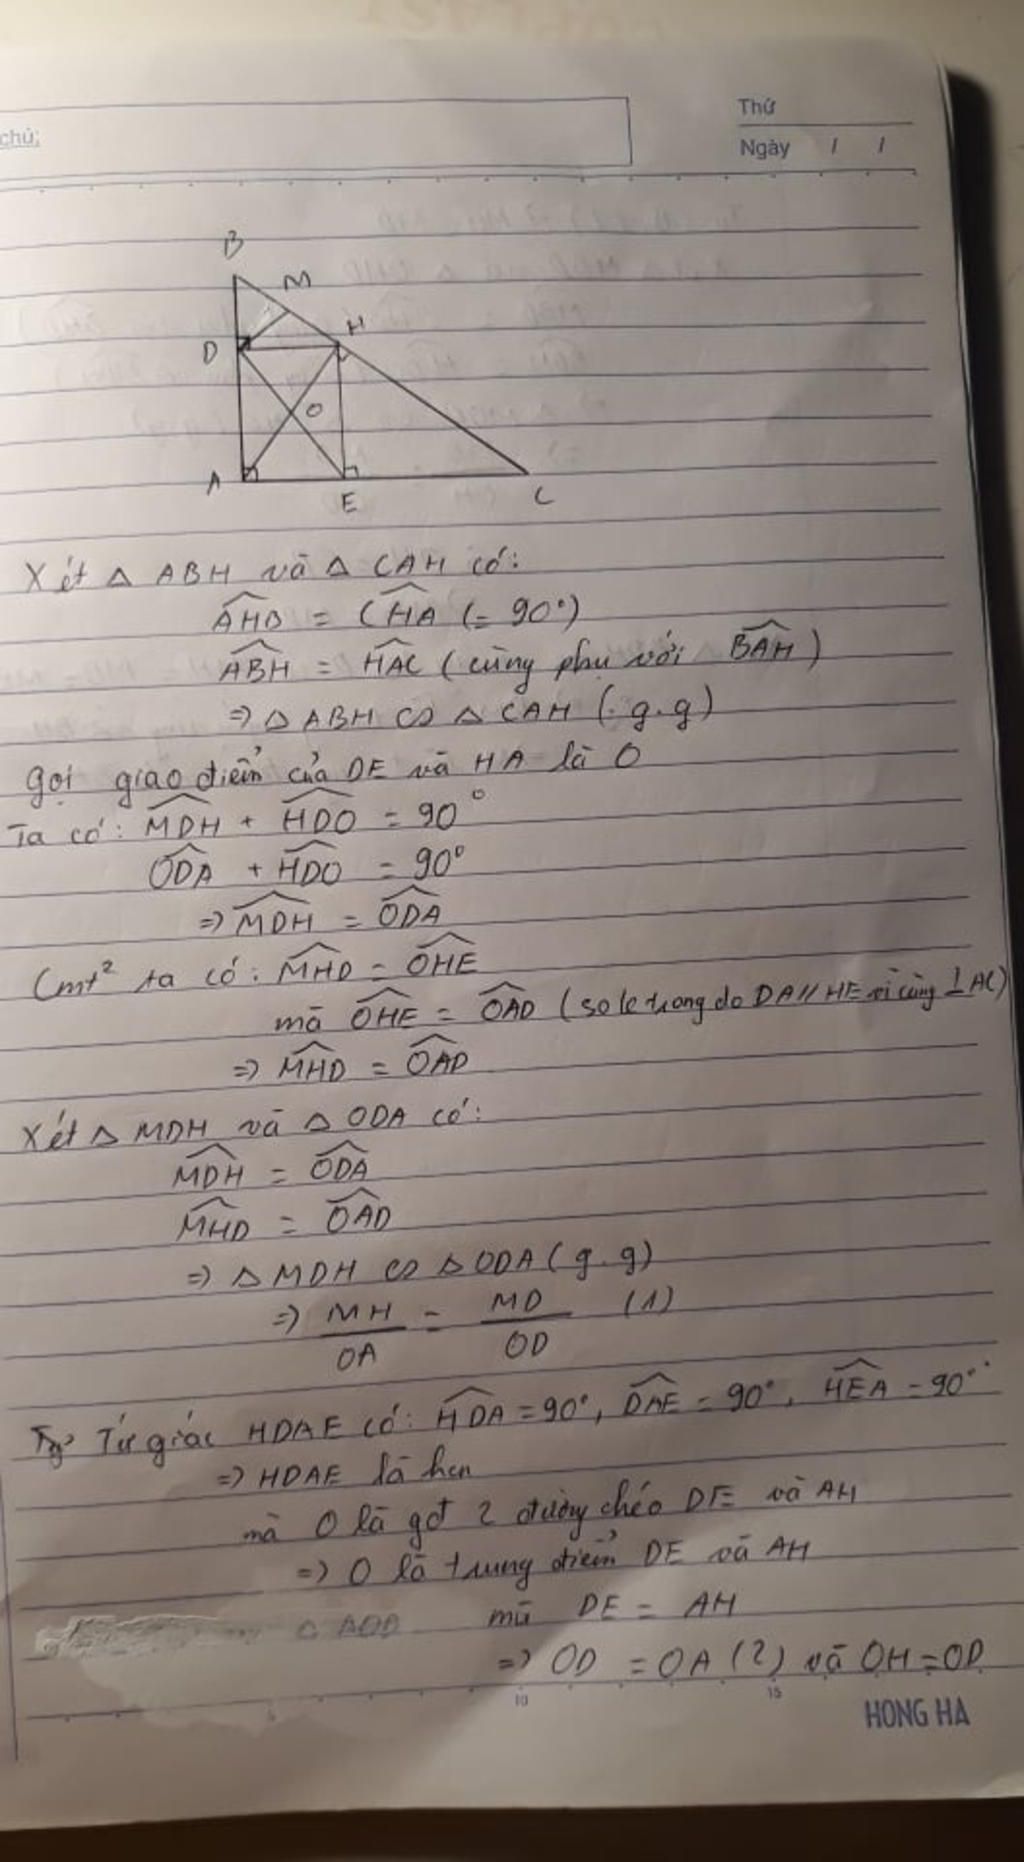 chú:
Thứ
Ngày / /
B
M
H
D
O
A
E
C
Xét △ ABH và △ CAH có:
AHB = CHA (= 90°)
ABH = HAC (cùng phụ với BAH)
⇒ △ ABH ∽ △ CAH (g.g)
gọi giao điểm của DE và HA là O
Ta có: MDH + HDO = 90°
ODA + HDO = 90°
⇒ MDH = ODA
Cmt² ta có: MHD = OHE
mà OHE = OAD (so le trong do DA // HE vì cùng ⊥ AC)
⇒ MHD = OAD
Xét △ MDH và △ ODA có:
MDH = ODA
MHD = OAD
⇒ △ MDH ∽ △ ODA (g.g)
⇒ MH/OA = MD/OD (1)
Tứ giác HDAE có: HDA = 90°, DAE = 90°, HEA = 90°
⇒ HDAE là hcn
mà O là gđ 2 đường chéo DE và AH
⇒ O là trung điểm DE và AH
△ AOD mà DE = AH
⇒ OD = OA (2) và OH = OD
10 15
HONG HA